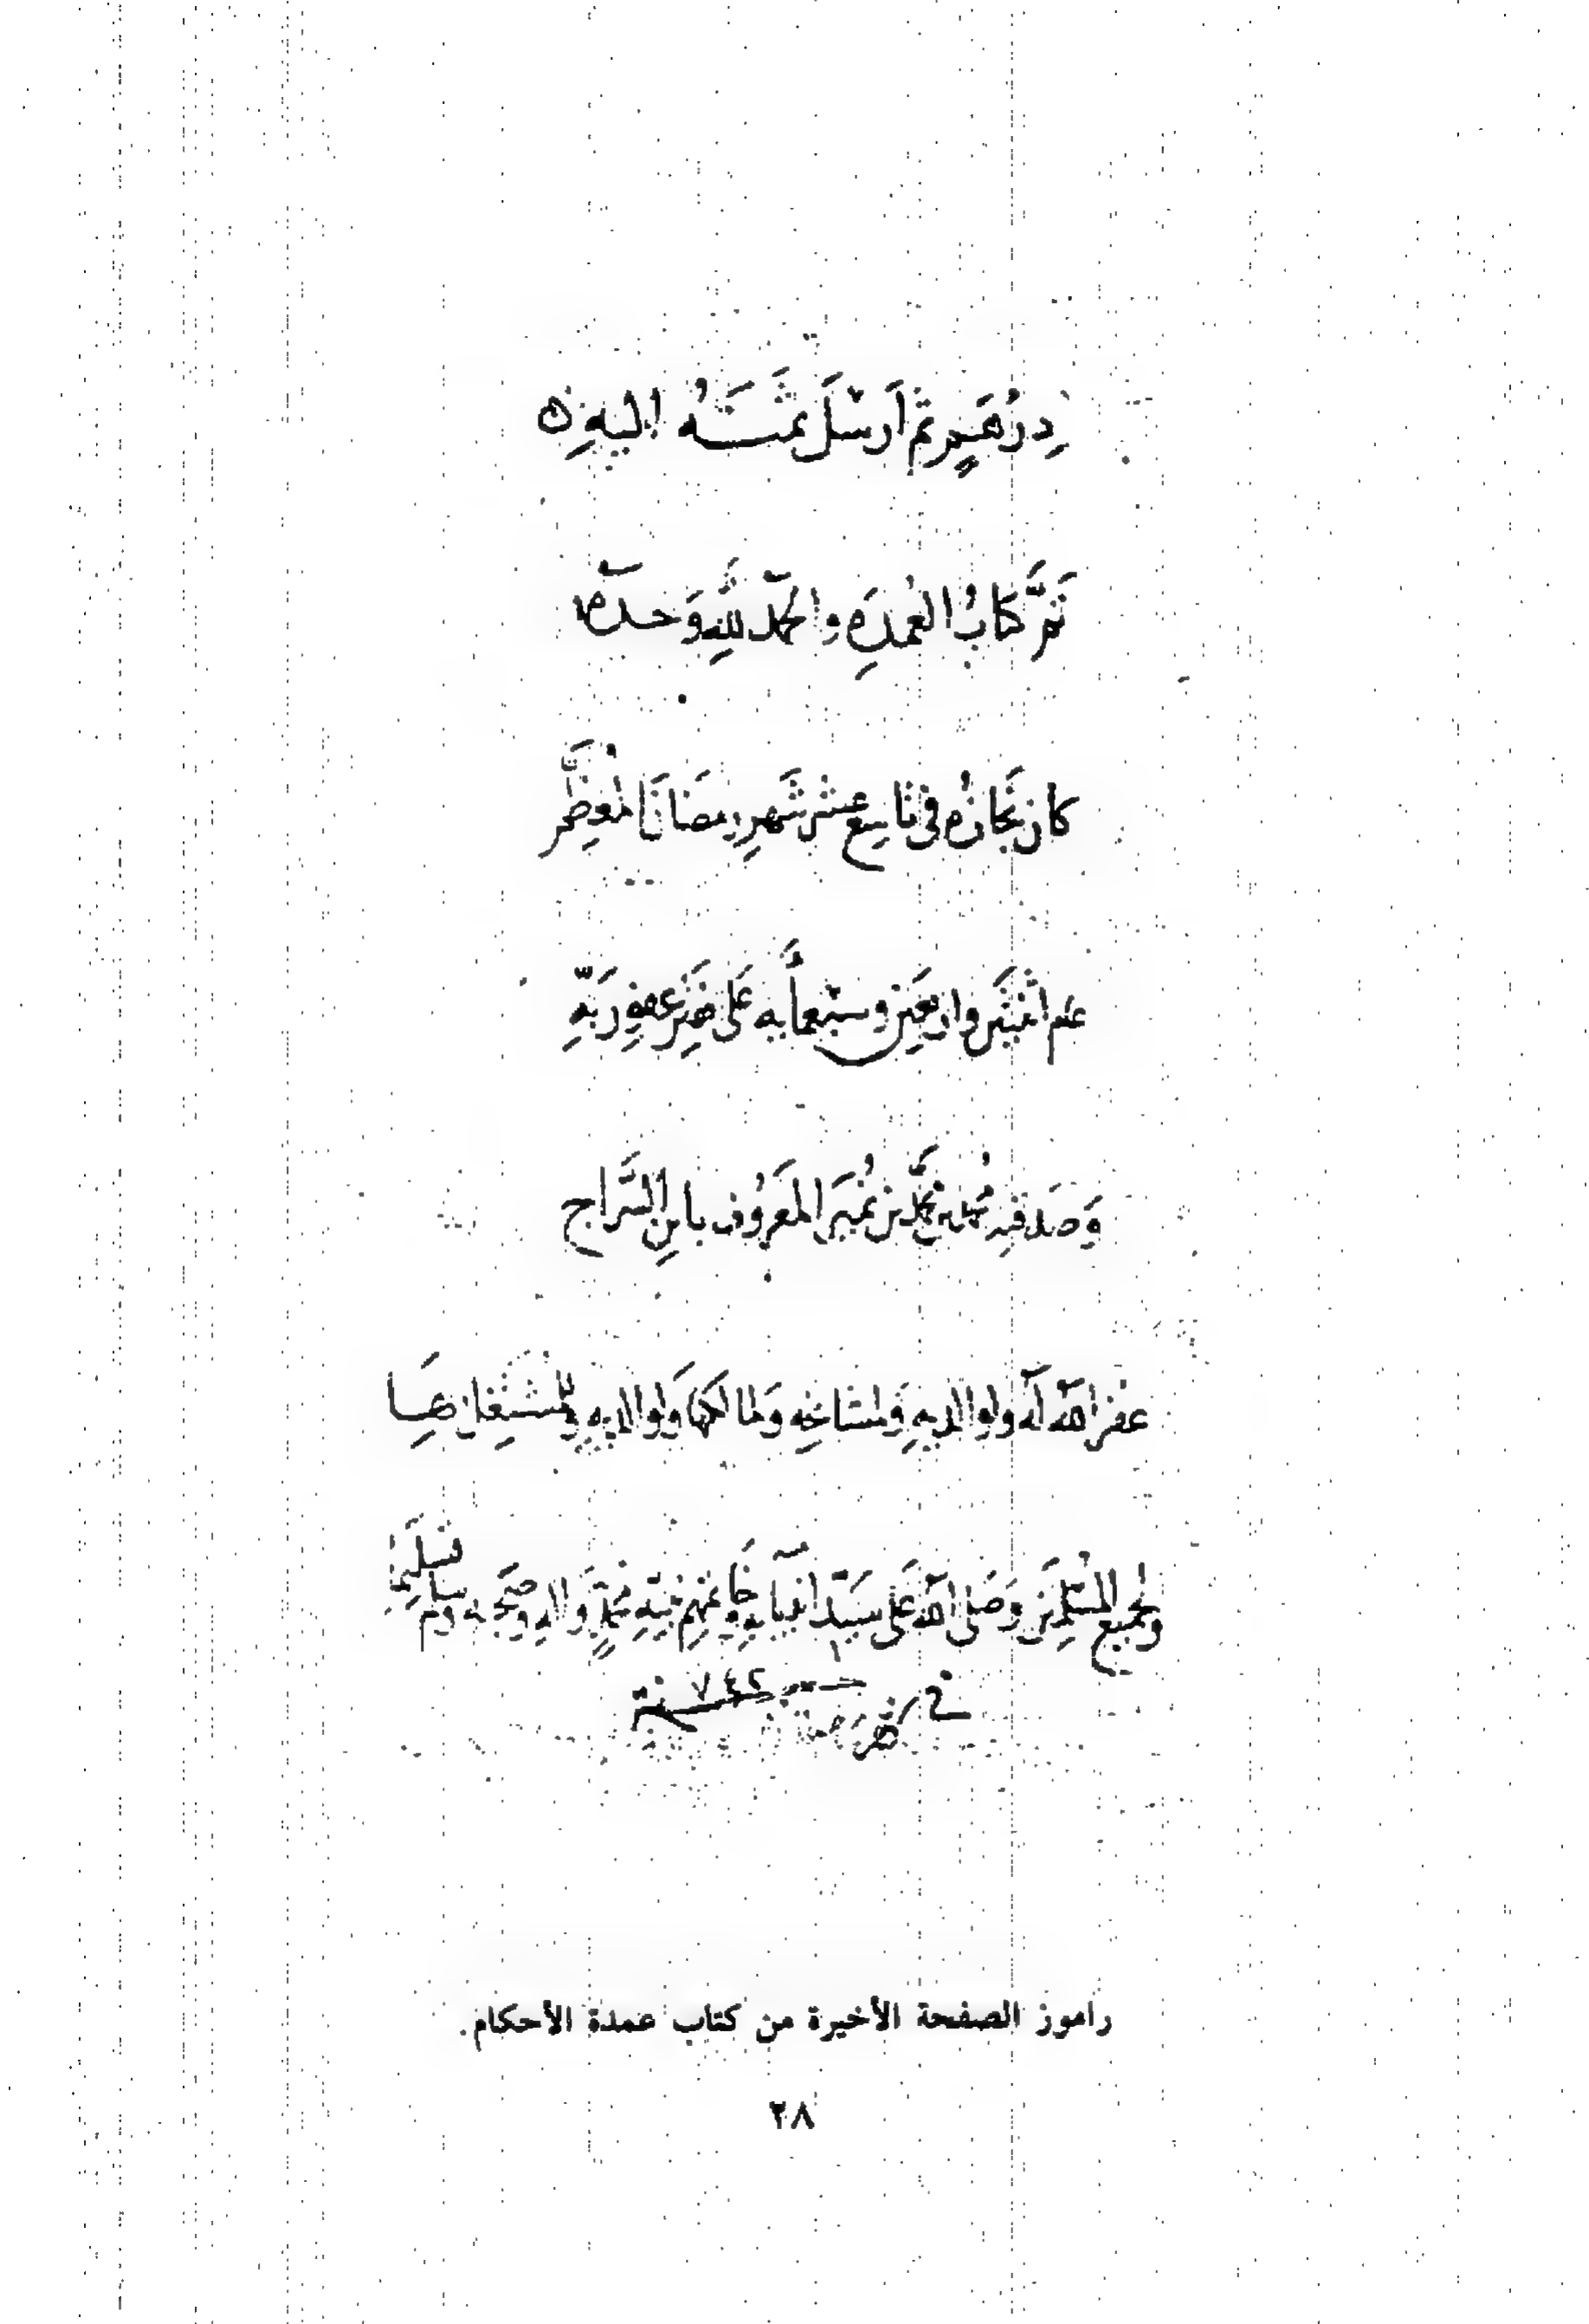 دِرْهَمٍ ثُمَّ أَرْسَلَ بِثَمَنِهِ إِلَيْهِ
تَمَّ كِتَابُ العُمْدَةِ والحَمْدُ لِلَّهِ وَحْدَهُ
كان نَجَازُه في تاسِع عشر شَهْرِ رمضانَ المُعظَّم
عام اثنتين واربعين وسبعمأيه على يد فقير عفوِ رَبِّهِ
وَصَدقتِهِ مُحمد بن مُحَمَّد بن نُمَيرَ المَعرُوف بابنِ السَّرَّاج
غفر الله لَهُ ولوالديهِ وَلمشايخِه وَلمالكها وَلوالديهِ وَللمُشتغلين بهَا
ولجميع المُسْلمين وَصَلى الله عَلى سَيّد أنبيَآيه وخَاتمهم نبيّهِ مُحمَّدٍ وَالهِ وصَحبه وسلم تسليمًا
في شهر رمضان سنة ٧٤٢
راموز الصفحة الأخيرة من كتاب عمدة الأحكام.
٢٨